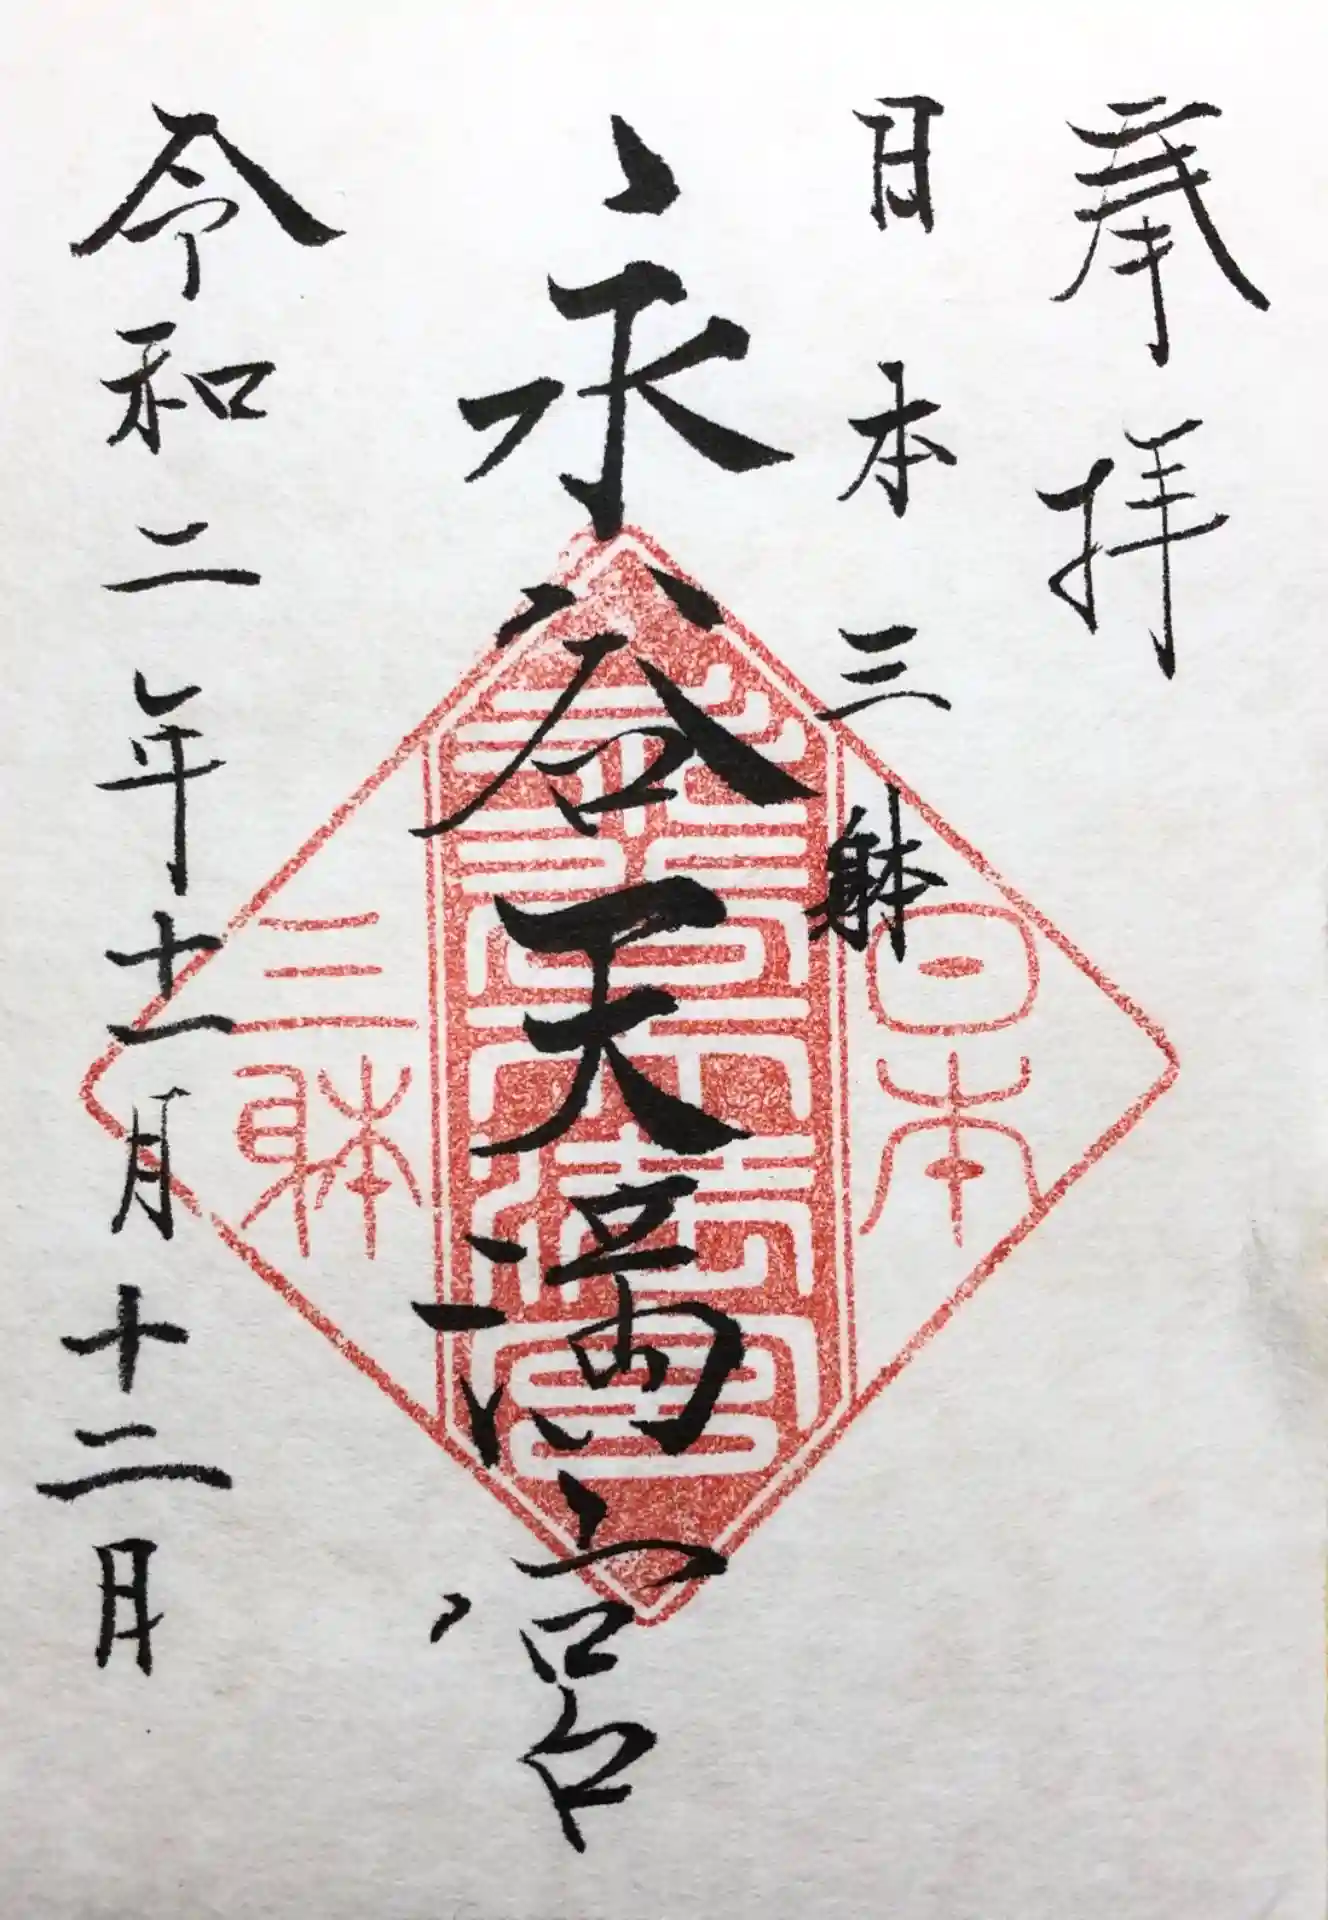 奉拝
日本三躰
永谷天満宮
令和二年十一月十二日
日本
永谷天満宮
三躰